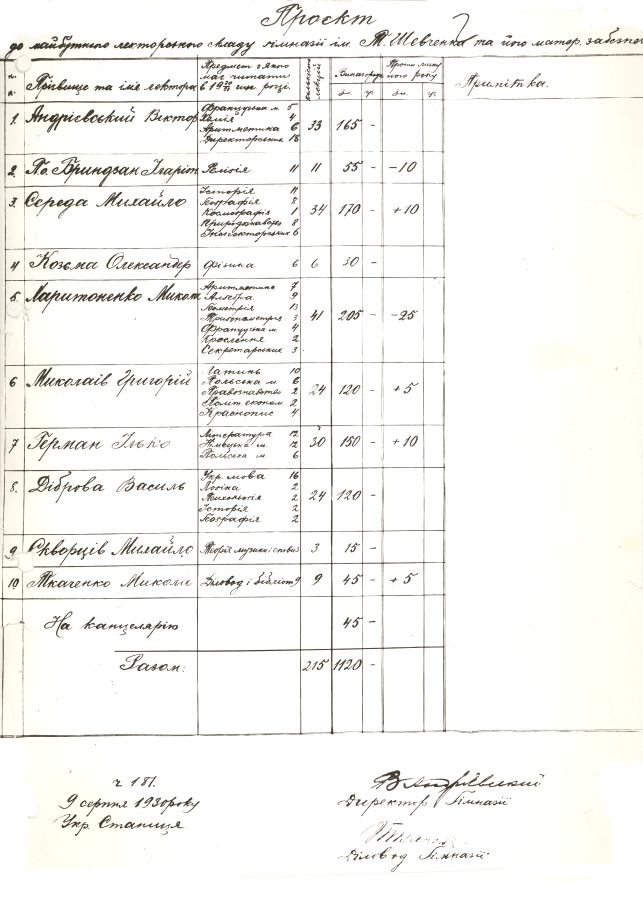 Проєкт
до майбутнього лекторського складу гімназії ім. Т. Шевченка та його матор. забезпеч
ч. ч. Прізвище та імя лектора Предмет з якого має читати в 19 шк. році. скількість лєкцій Винагорода Проти минулого року Примітка.
зл. гр. зл. гр.
1. Андрієвський Віктор Французька м. 5 33 165 -
Хемія 4
Аритметика 6
Директорських 18
2. По. Бриндзан Релігія 11 11 55 - -10
3. Середа Михайло Історія 11 34 170 - +10
Географія 8
Космографія 1
Природознавство 8
Інспекторських 6
4 Козьма Олександер Фізика 6 6 30 -
5. Харитоненко Микола Аритметика 7 41 205 - -25
Альгебра 9
Геометрія 13
Тригонометрія 3
Французська м. 4
Креслення 2
Секретарських 3
6 Миколаїв Григорій Латинь 10 24 120 - +5
Польська м. 6
Правознавство 2
Політ. економ. 2
Краснопис 4
7 Герман Ілько Література 12 30 150 - +10
Німецька м. 12
Польська м. 6
8. Діброва Василь Укр. мова 16 24 120 -
Логіка 2
Психологія 2
Історія 2
Географія 2
9 Скворців Михайло Теорія музики і співи 3 3 15 -
10. Ткаченко Микола Діловод і бібліот 9 9 45 - +5
На канцелярію 45 -
Разом: 215 1120 -
ч 181.
9 серпня 1930 року
Укр. Станиця
В Андрієвський
Директор Гімназії
Діловод Гімназії